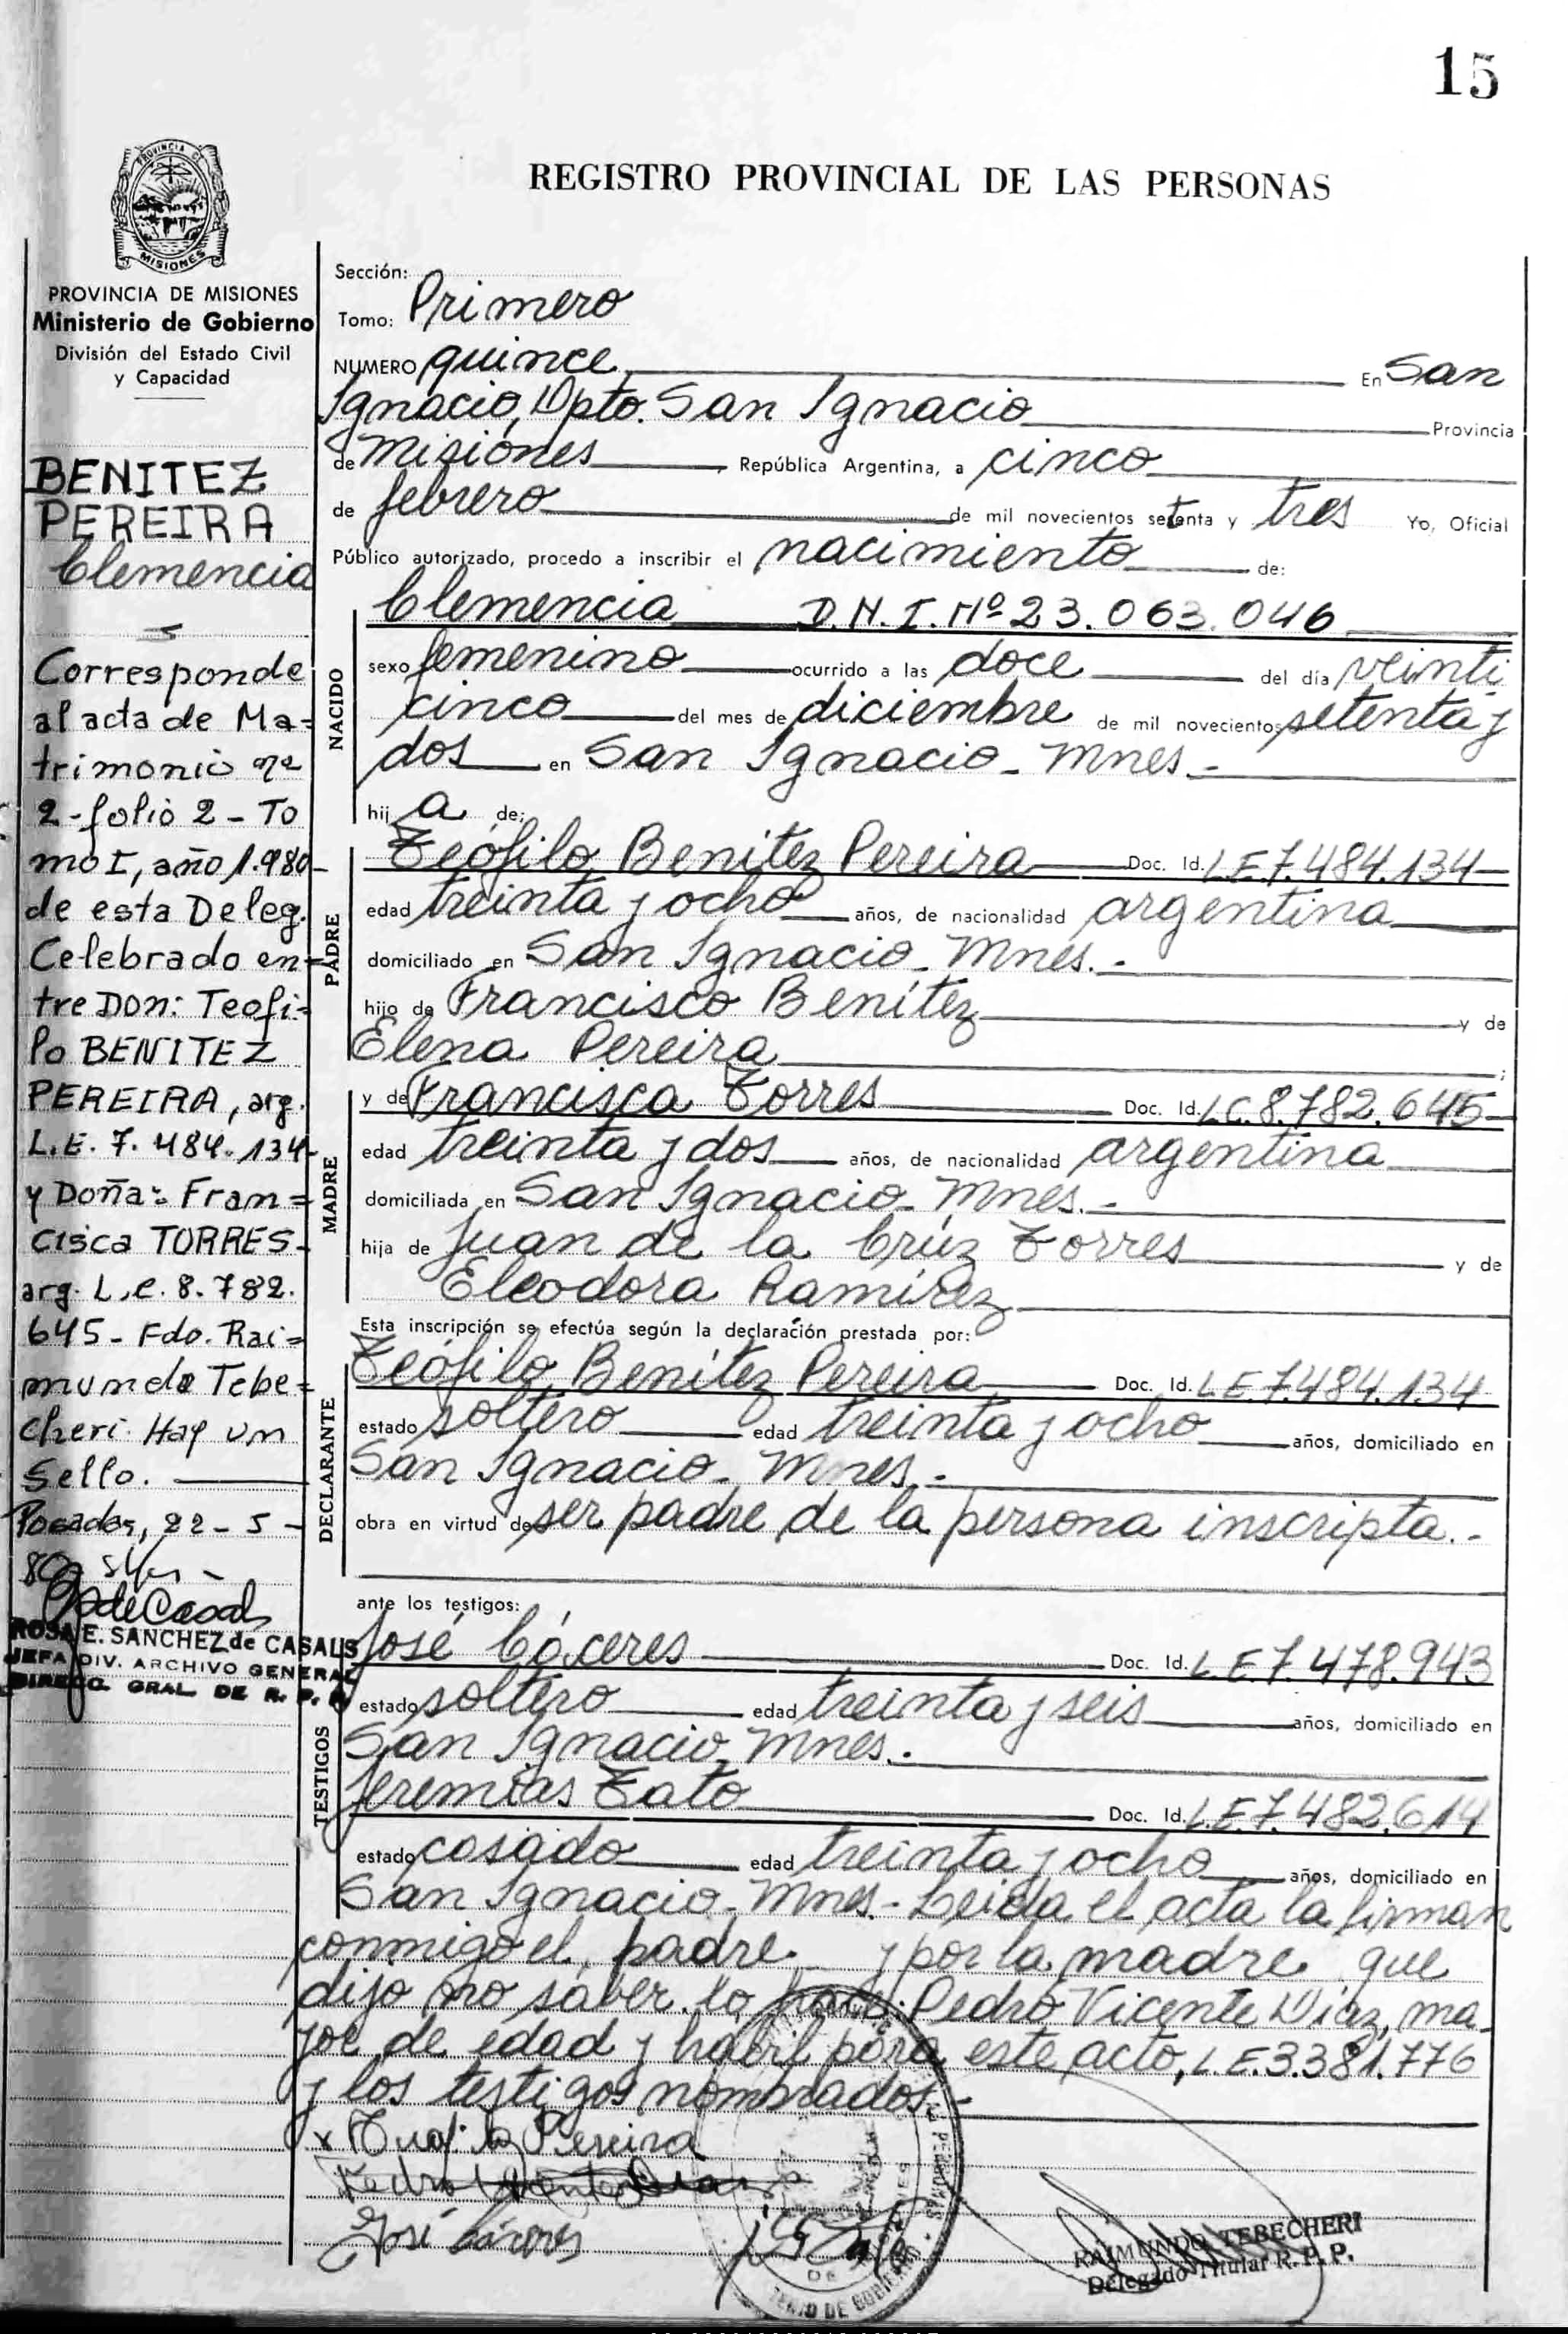 15
REGISTRO PROVINCIAL DE LAS PERSONAS
PROVINCIA DE
MISIONES
PROVINCIA DE MISIONES
Ministerio de Gobierno
División del Estado Civil
y Capacidad
BENITEZ
PEREIRA
Clemencia
Corresponde
al acta de Ma=
trimonio nº
2 - folio 2 - To
mo I, año 1.980-
de esta Deleg.
Celebrado en=
tre Don: Teofi=
lo BENITEZ
PEREIRA, arg.
L.E. 7.484.134-
y Doña: Fran=
cisca TORRES-
arg. L.C. 8.782.
645 - Fdo. Rai=
mundo Tebe=
cheri. Hay un
Sello.
Posadas, 22-5-
80
ROSA E. SANCHEZ de CASALS
JEFA DIV. ARCHIVO GENERAL
DIRECC. GRAL. DE R. P. P.
Sección:
Tomo: Primero
NUMERO quince En San
Ignacio, Dpto. San Ignacio Provincia
de Misiones, República Argentina, a cinco
de febrero de mil novecientos setenta y tres Yo, Oficial
Público autorizado, procedo a inscribir el nacimiento de:
NACIDO
Clemencia D.N.I. Nº 23.063.046
sexo femenino ocurrido a las doce del día veinti
cinco del mes de diciembre de mil novecientos setenta y
dos en San Ignacio - Mnes. -
hij a de:
PADRE
Teófilo Benítez Pereira Doc. Id. L.E. 7.484.134
edad treinta y ocho años, de nacionalidad argentina
domiciliado en San Ignacio - Mnes. -
hijo de Francisco Benítez y de
Elena Pereira ;
MADRE
y de Francisca Torres Doc. Id. L.C. 8.782.645
edad treinta y dos años, de nacionalidad argentina
domiciliada en San Ignacio - Mnes. -
hija de Juan de la Crúz Torres y de
Eleodora Ramírez
Esta inscripción se efectúa según la declaración prestada por:
DECLARANTE
Teófilo Benítez Pereira Doc. Id. L.E. 7.484.134
estado soltero edad treinta y ocho años, domiciliado en
San Ignacio - Mnes. -
obra en virtud de ser padre de la persona inscripta. -
ante los testigos:
TESTIGOS
José Cáceres Doc. Id. L.E. 7.478.943
estado soltero edad treinta y seis años, domiciliado en
San Ignacio - Mnes. -
Jeremías Tato Doc. Id. L.E. 7.482.614
estado casado edad treinta y ocho años, domiciliado en
San Ignacio - Mnes. - Leída el acta la firman
conmigo el padre y por la madre que
dijo no saber lo Pedro Vicente Díaz, ma-
yor de edad y hábil para este acto, L.E. 3.381.776
y los testigos nombrados. -
x Pereira
Pedro Vicente Diaz
José Cáceres
RAIMUNDO TEBECHERI
Delegado Titular R. P. P.